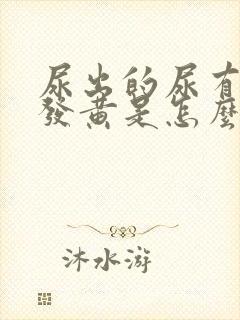 尿出的尿有
發黃是怎麼
沐水游